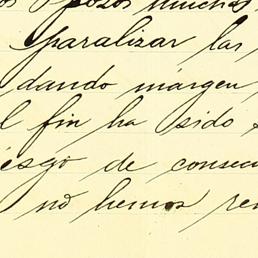 pozos muchos
paralizar las
dando márgen
l fin ha sido
esgo de consecu
no hemos re